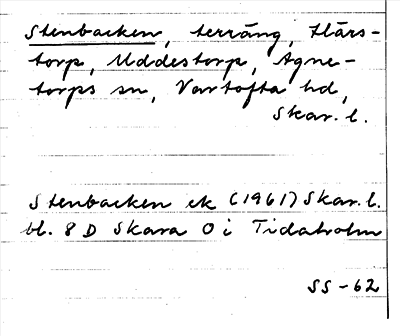 Stenbacken, terräng, Härs-
torp, Uddestorp, Agne-
torps sn, Vartofta hd,
Skar. l.
Stenbacken ek (1961) Skar. l.
bl. 8 D Skara O i Tidaholm
SS-62